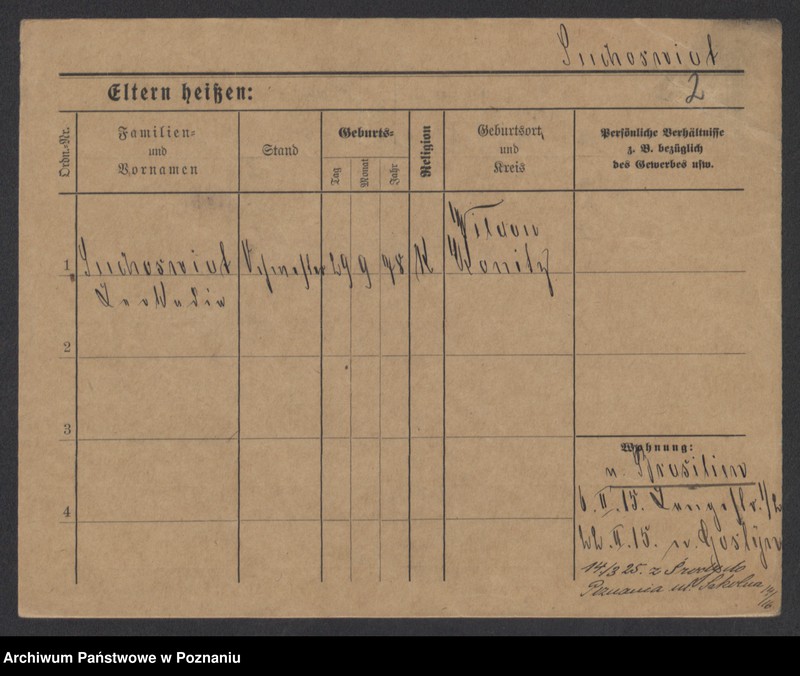 Suchoswiat
2
Eltern heißen:
Ordn.-Nr.
Familien-
und
Vornamen
Stand
Geburts-
Tag
Monat
Jahr
Religion
Geburtsort
und
Kreis
Persönliche Verhältnisse
z. B. bezüglich
des Gewerbes usw.
1
Suchoswiat
Leokadia
Schwester
29
9
98
K
Konitz
2
3
4
Wohnung:
n. Brasilien
6. II. 15. Langestr. 1/2
22. II. 15. n. Gostyn
14/3 25. z
Poznania ul. Szkolna
Archiwum Państwowe w Poznaniu